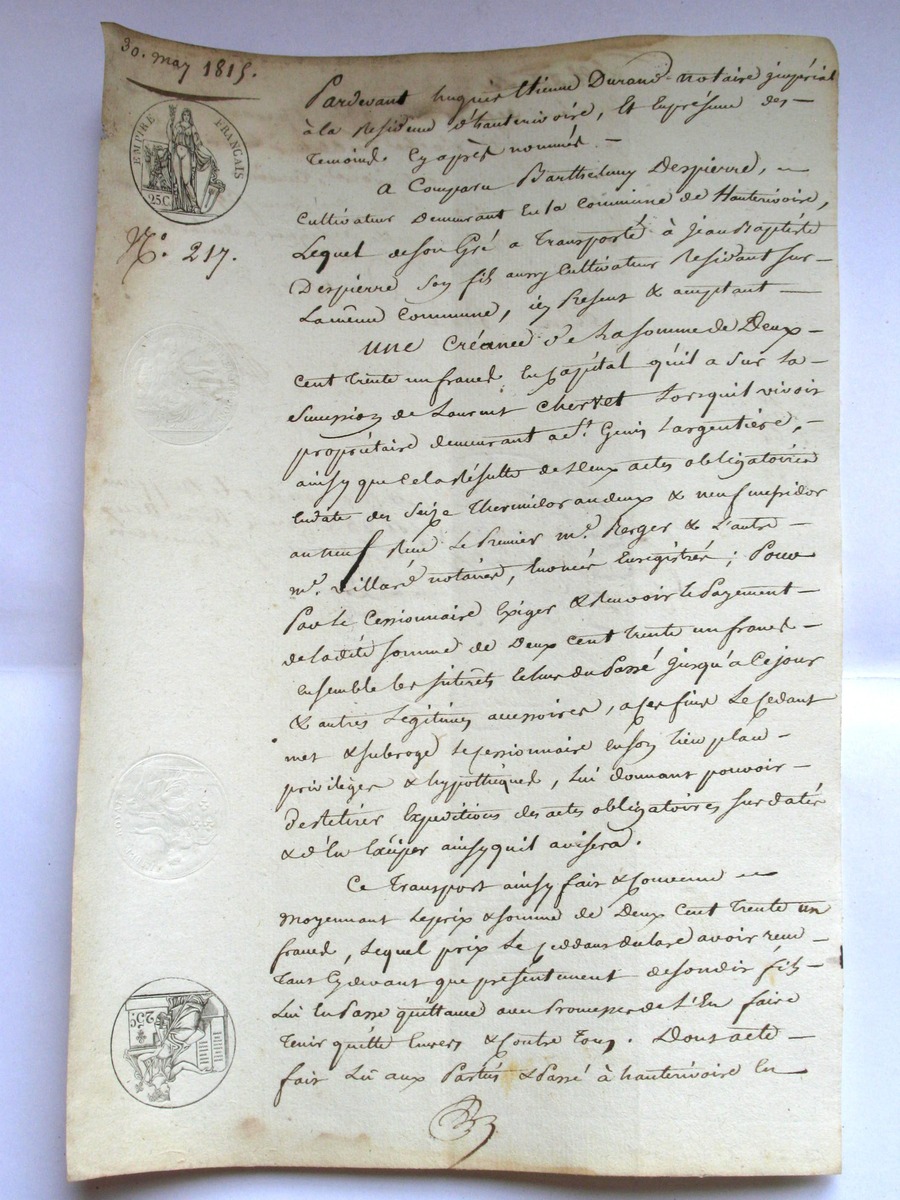 30. may 1815.
EMPIRE FRANÇAIS
25C
N.° 217.
Pardevant hugues Etienne Durand notaire jmpérial
à la Residence d'hauterivoire, Et Enprésence des
temoins Cy après nommés.
A Comparu Barthelemy Despierre,
Cultivateur Demeurant En la Commune de Hauterivoire,
Lequel de son Gré a transporté à jean Baptiste
Despierre son fils aussy Cultivateur Residant sur
La même Commune, icy Present & acceptant
Une Créance de La somme de Deux
cent trente un francs En Capital qu'il a sur La
succession de Laurent Chervet Lorsquil vivoit
propriétaire demeurant a S.t Genis Largentière,
ainsy que cela Résulte de deux actes obligatoires
En date des Seize thermidor an deux & neuf messidor
an neuf Recu Le Premier m.e Berger & L'autre
m.e Villard notaires, Enoncés Enregistrés; Pour
Par le Cessionnaire Exiger & Recevoir le Payement
de la dite somme de Deux Cent trente un francs
ensemble les jnterêts de jusqu'a Ce jour
& autres Légitimes accessoires, a ces fins Le Cedant
met & subroge Le Cessionnaire En son lieu place
privilèges & hypothèques, Lui donnant pouvoir
de Retirer Expeditions des actes obligatoires susdatés
& d'En ainsy quil avisera.
Ce transport ainsy fait & Convenu
moyennant Le prix & somme de Deux Cent trente un
francs, Lequel prix Le Ceddant declare avoir recu
tant Cy devant que présentement de son dit fils
Lui En Passe quittance avec Promesse de L'En faire
tenir quitte Envers & Contre tous. Dont acte
fait Lu aux Parties & Passé à hauterivoire En
25C